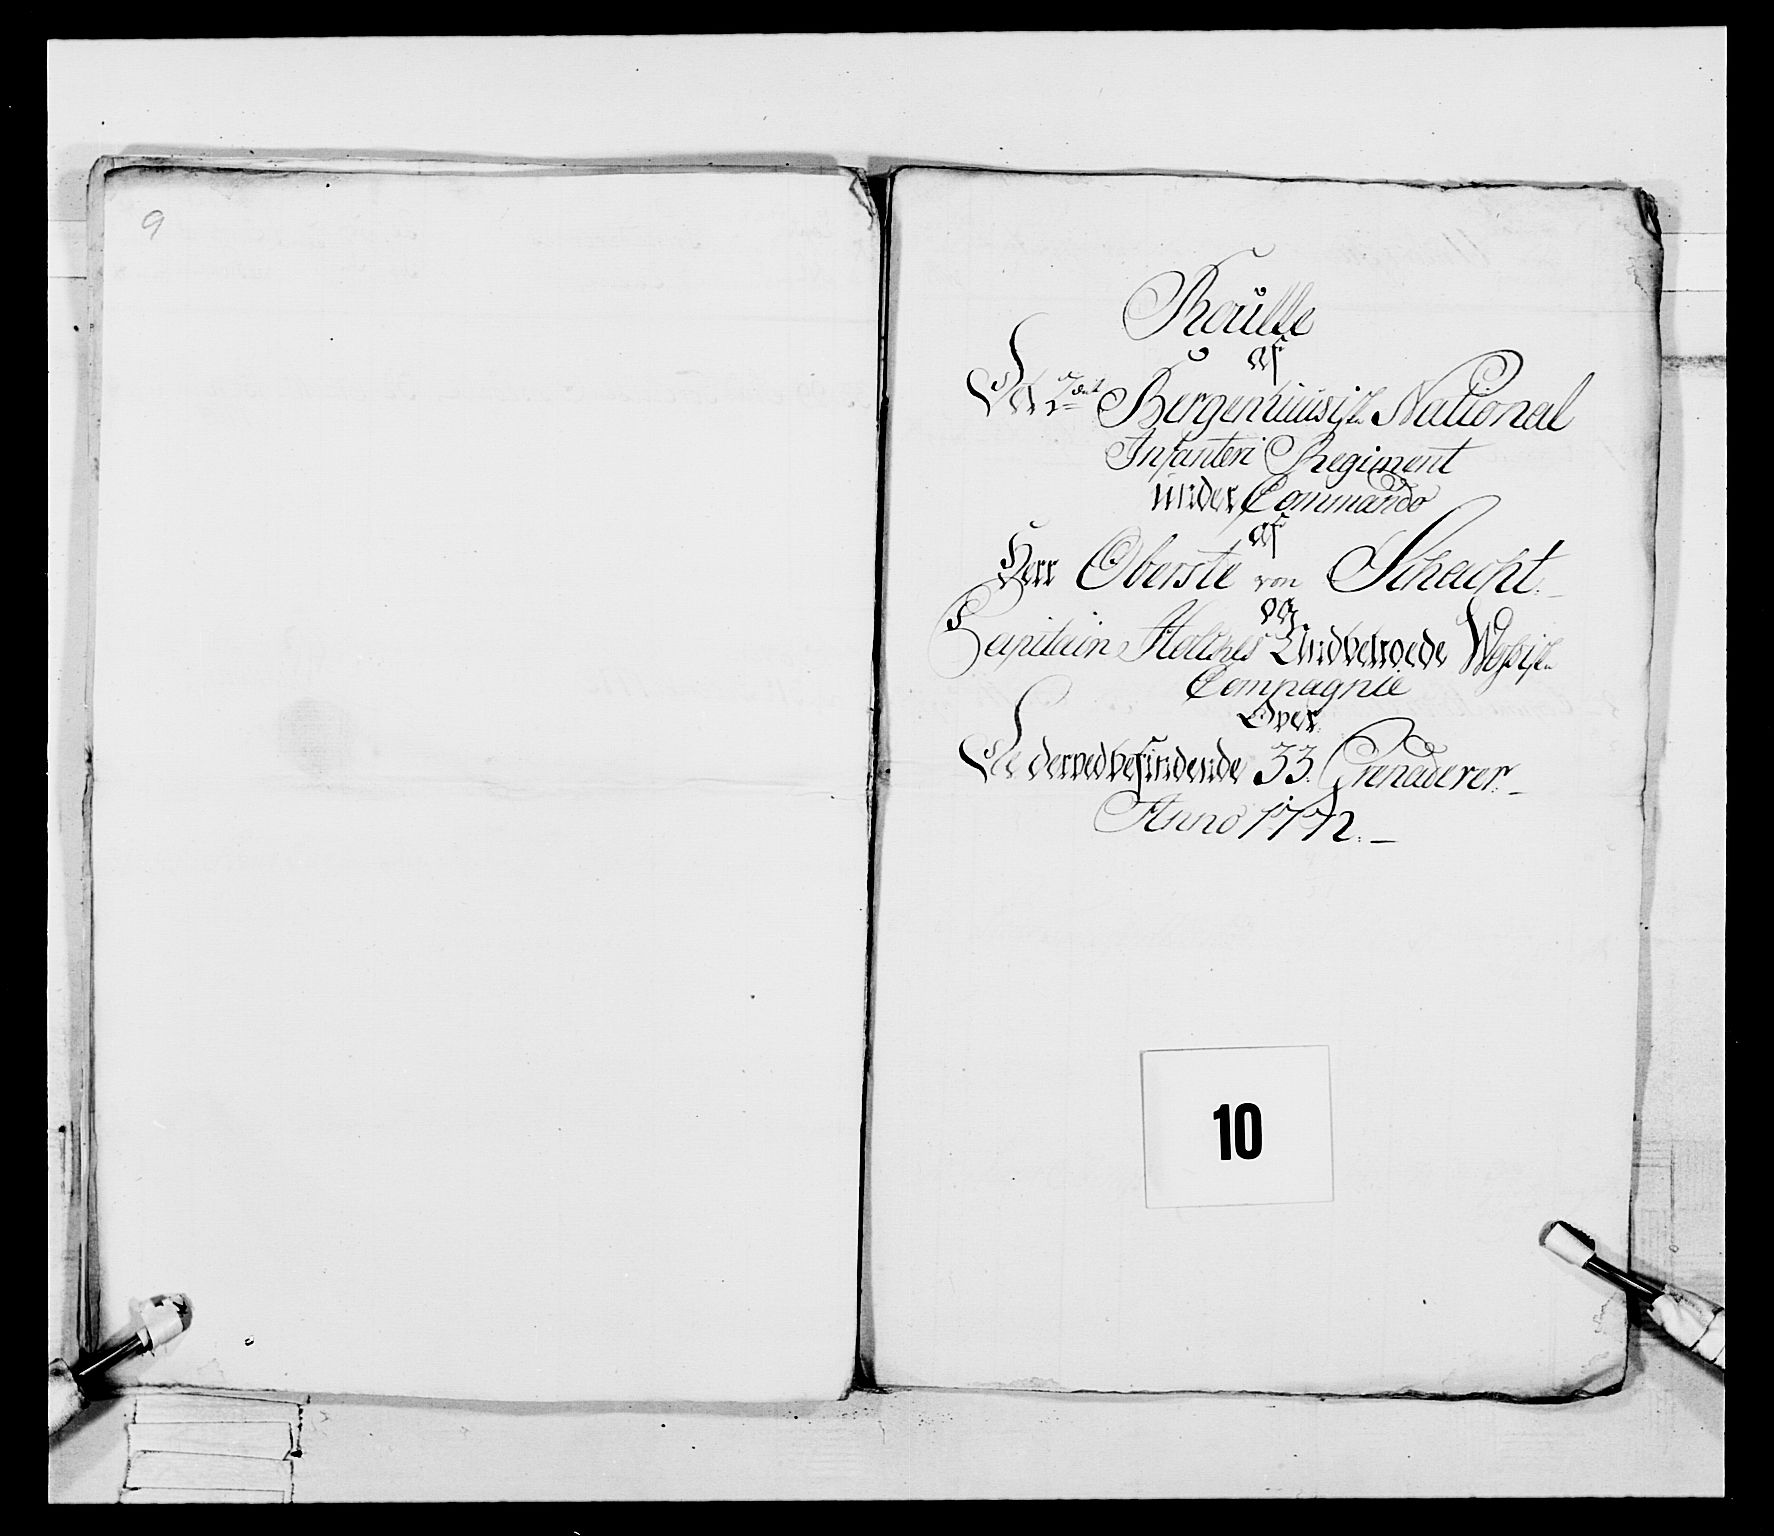 9
Roülle
af
Det 2det Bergenhuusisk National
Infanteri Regiment
under Commando
af
Herr Oberste von Schacht:
og
Capitain Holthes Undhavende
Compagnie
Over
De derved befindende 33. Grenaderer.
Anno 1772.
10